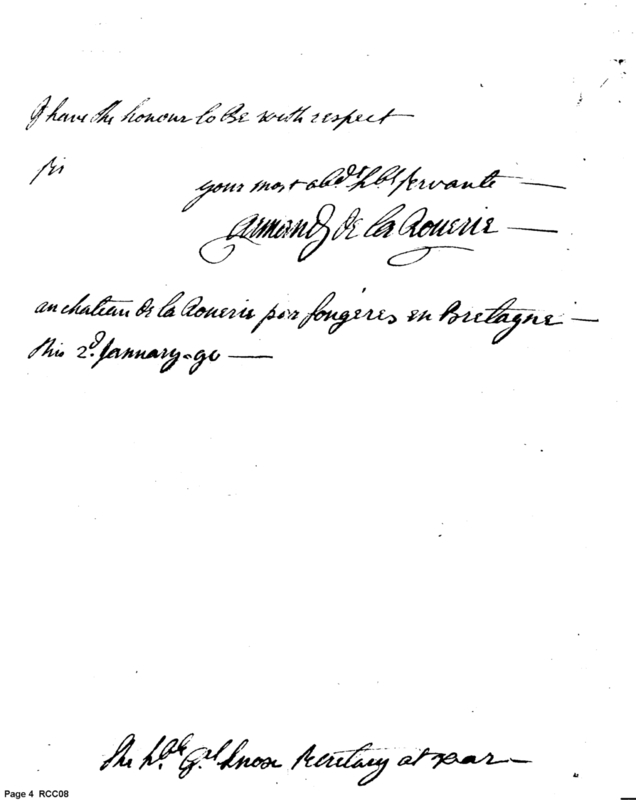 I have the honour to Be with respect
Sir
your most obdt hbl servante
Armand de la Rouerie
au chateau de la Rouerie par fougéres en Bretagne
this 2d January 90
The hble Gal Knox Secretary at war
Page 4 RCC08